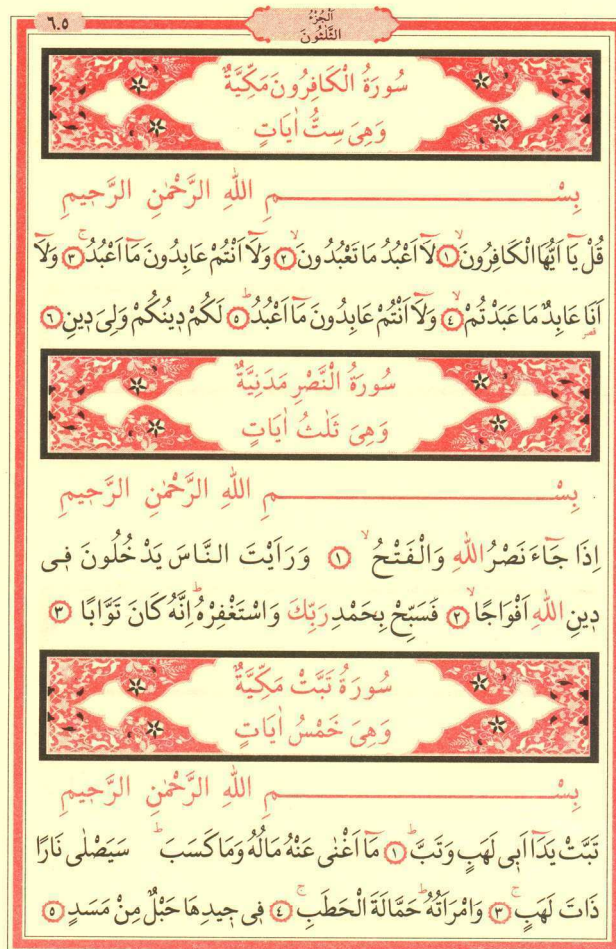 ٦٠٥
اَلْجُزْءُ
الثَّلٰثُونَ
سُورَةُ الْكَافِرُونَ مَكِّيَّةٌ
وَهِيَ سِتُّ اٰيَاتٍ
بِسْمِ اللّٰهِ الرَّحْمٰنِ الرَّحِيمِ
قُلْ يَٓا اَيُّهَا الْكَافِرُونَۙ ﴿١﴾ لَٓا اَعْبُدُ مَا تَعْبُدُونَۙ ﴿٢﴾ وَلَٓا اَنْتُمْ عَابِدُونَ مَٓا اَعْبُدُۚ ﴿٣﴾ وَلَٓا
اَنَا۬ عَابِدٌ مَا عَبَدْتُمْۙ ﴿٤﴾ وَلَٓا اَنْتُمْ عَابِدُونَ مَٓا اَعْبُدُۜ ﴿٥﴾ لَكُمْ دِينُكُمْ وَلِيَ دِينِ ﴿٦﴾
قصر
سُورَةُ النَّصْرِ مَدَنِيَّةٌ
وَهِيَ ثَلٰثُ اٰيَاتٍ
بِسْمِ اللّٰهِ الرَّحْمٰنِ الرَّحِيمِ
اِذَا جَٓاءَ نَصْرُ اللّٰهِ وَالْفَتْحُۙ ﴿١﴾ وَرَاَيْتَ النَّاسَ يَدْخُلُونَ فِي
دِينِ اللّٰهِ اَفْوَاجًاۙ ﴿٢﴾ فَسَبِّحْ بِحَمْدِ رَبِّكَ وَاسْتَغْفِرْهُۜ اِنَّهُ كَانَ تَوَّابًا ﴿٣﴾
سُورَةُ تَبَّتْ مَكِّيَّةٌ
وَهِيَ خَمْسُ اٰيَاتٍ
بِسْمِ اللّٰهِ الرَّحْمٰنِ الرَّحِيمِ
تَبَّتْ يَدَٓا اَبِي لَهَبٍ وَتَبَّۜ ﴿١﴾ مَٓا اَغْنٰى عَنْهُ مَالُهُ وَمَا كَسَبَۜ سَيَصْلٰى نَارًا
ذَاتَ لَهَبٍۚ ﴿٣﴾ وَامْرَاَتُهُۜ حَمَّالَةَ الْحَطَبِۚ ﴿٤﴾ فِي جِيدِهَا حَبْلٌ مِنْ مَسَدٍ ﴿٥﴾